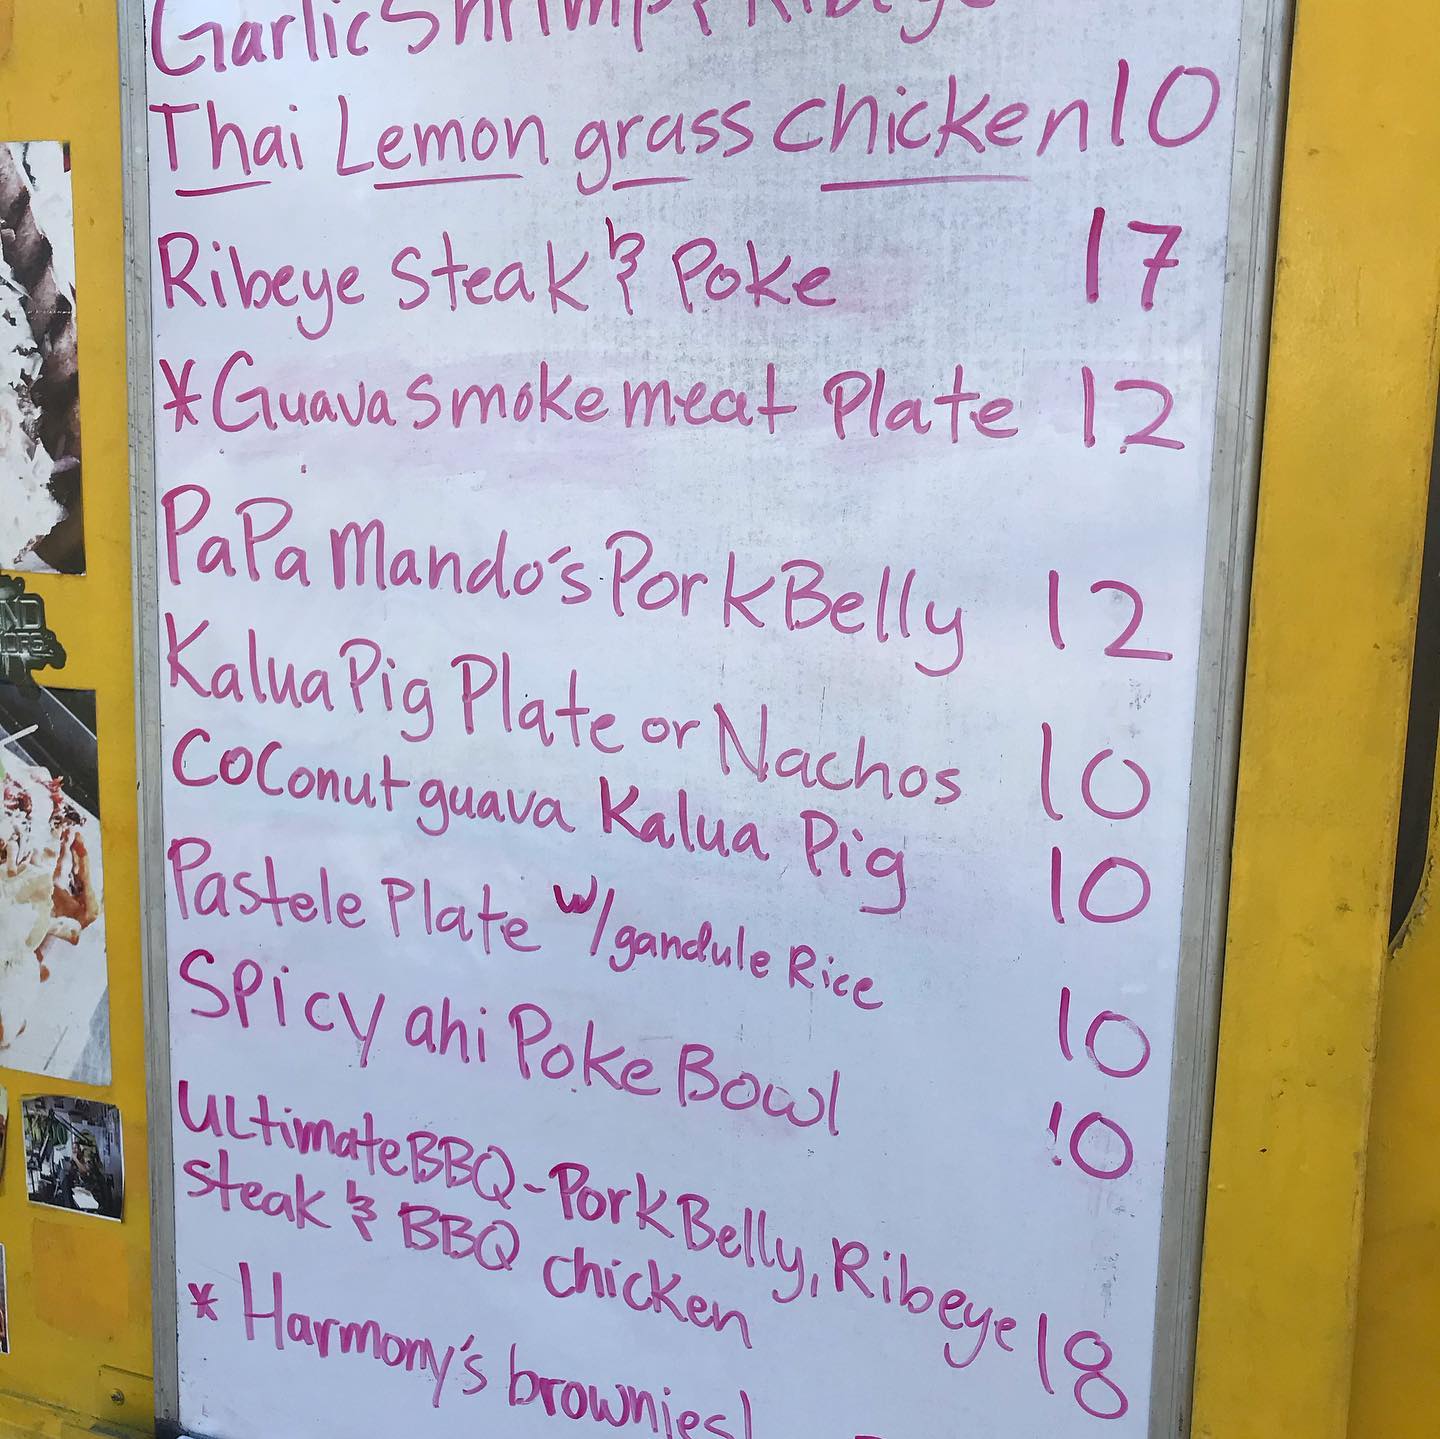 Garlic Shrimp & Ribeye
Thai Lemon grass chicken 10
Ribeye steak & Poke 17
*Guava smoke meat Plate 12
PaPa Mando's Pork Belly 12
Kalua Pig Plate or Nachos 10
Coconut guava Kalua Pig 10
Pastele Plate w/gandule Rice 10
Spicy ahi Poke Bowl 10
Ultimate BBQ-Pork Belly, Ribeye 18
steak & BBQ chicken
* Harmony's brownies!